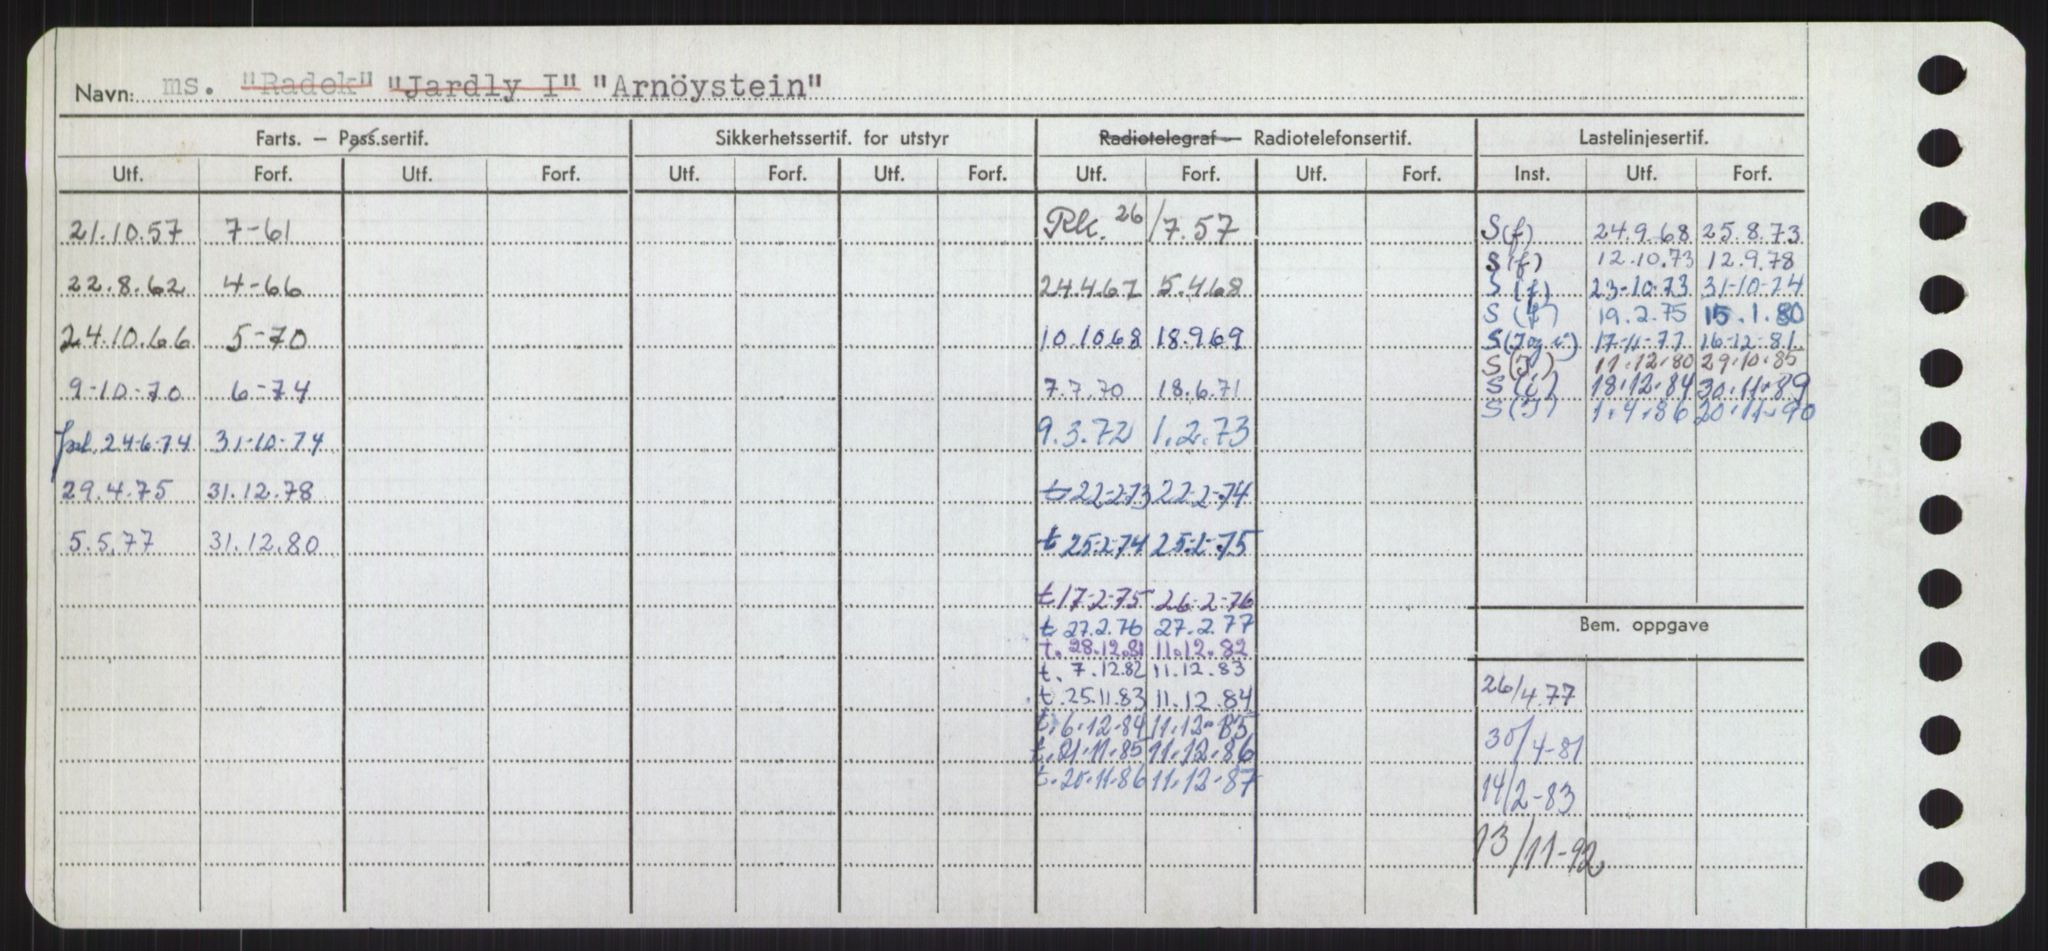 Navn: ms. "Radek" "Jardly I" "Arnöystein"
Farts. — Pass.sertif. Sikkerhetssertif. for utstyr Radiotelegraf — Radiotelefonsertif. Lastelinjesertif.
Utf. Forf. Utf. Forf. Utf. Forf. Utf. Forf. Utf. Forf. Utf. Forf. Inst. Utf. Forf.
21.10.57 7-61 Rk. 26/7.57 S(f) 24.9.68 25.8.73
S(f) 12.10.73 12.9.78
22.8.62 4-66 24.4.67 5.4.68 S(f) 23-10-73 31-10-74
S(f) 19.2.75 15.1.80
24.10.66 5-70 10.10.68 18.9.69 S( og i) 17-11-77 16-12-81
S( ) 11.12.80 29.10.85
9-10-70 6-74 7.7.70 18.6.71 S(i) 18.12.84 30.11.89
S( ) 1.9.86 20.11.90
24-6-74 31-10-74 9.3.72 1.2.73
29.4.75 31.12.78 t 22-2-73 22-2-74
5.5.77 31.12.80 t 25-2-74 25-2-75
t 17-2-75 26-2-76
t 27.2.76 27.2.77 Bem. oppgave
t. 28.12.81 11.12.82
t. 7.12.82 11.12.83 26/4.77
t. 25.11.83 11.12.84
t. 6.12.84 11.12.85 30/4-81
t. 21.11.85 11.12.86
t. 20.11.86 11.12.87 14/2-83
13/11-92